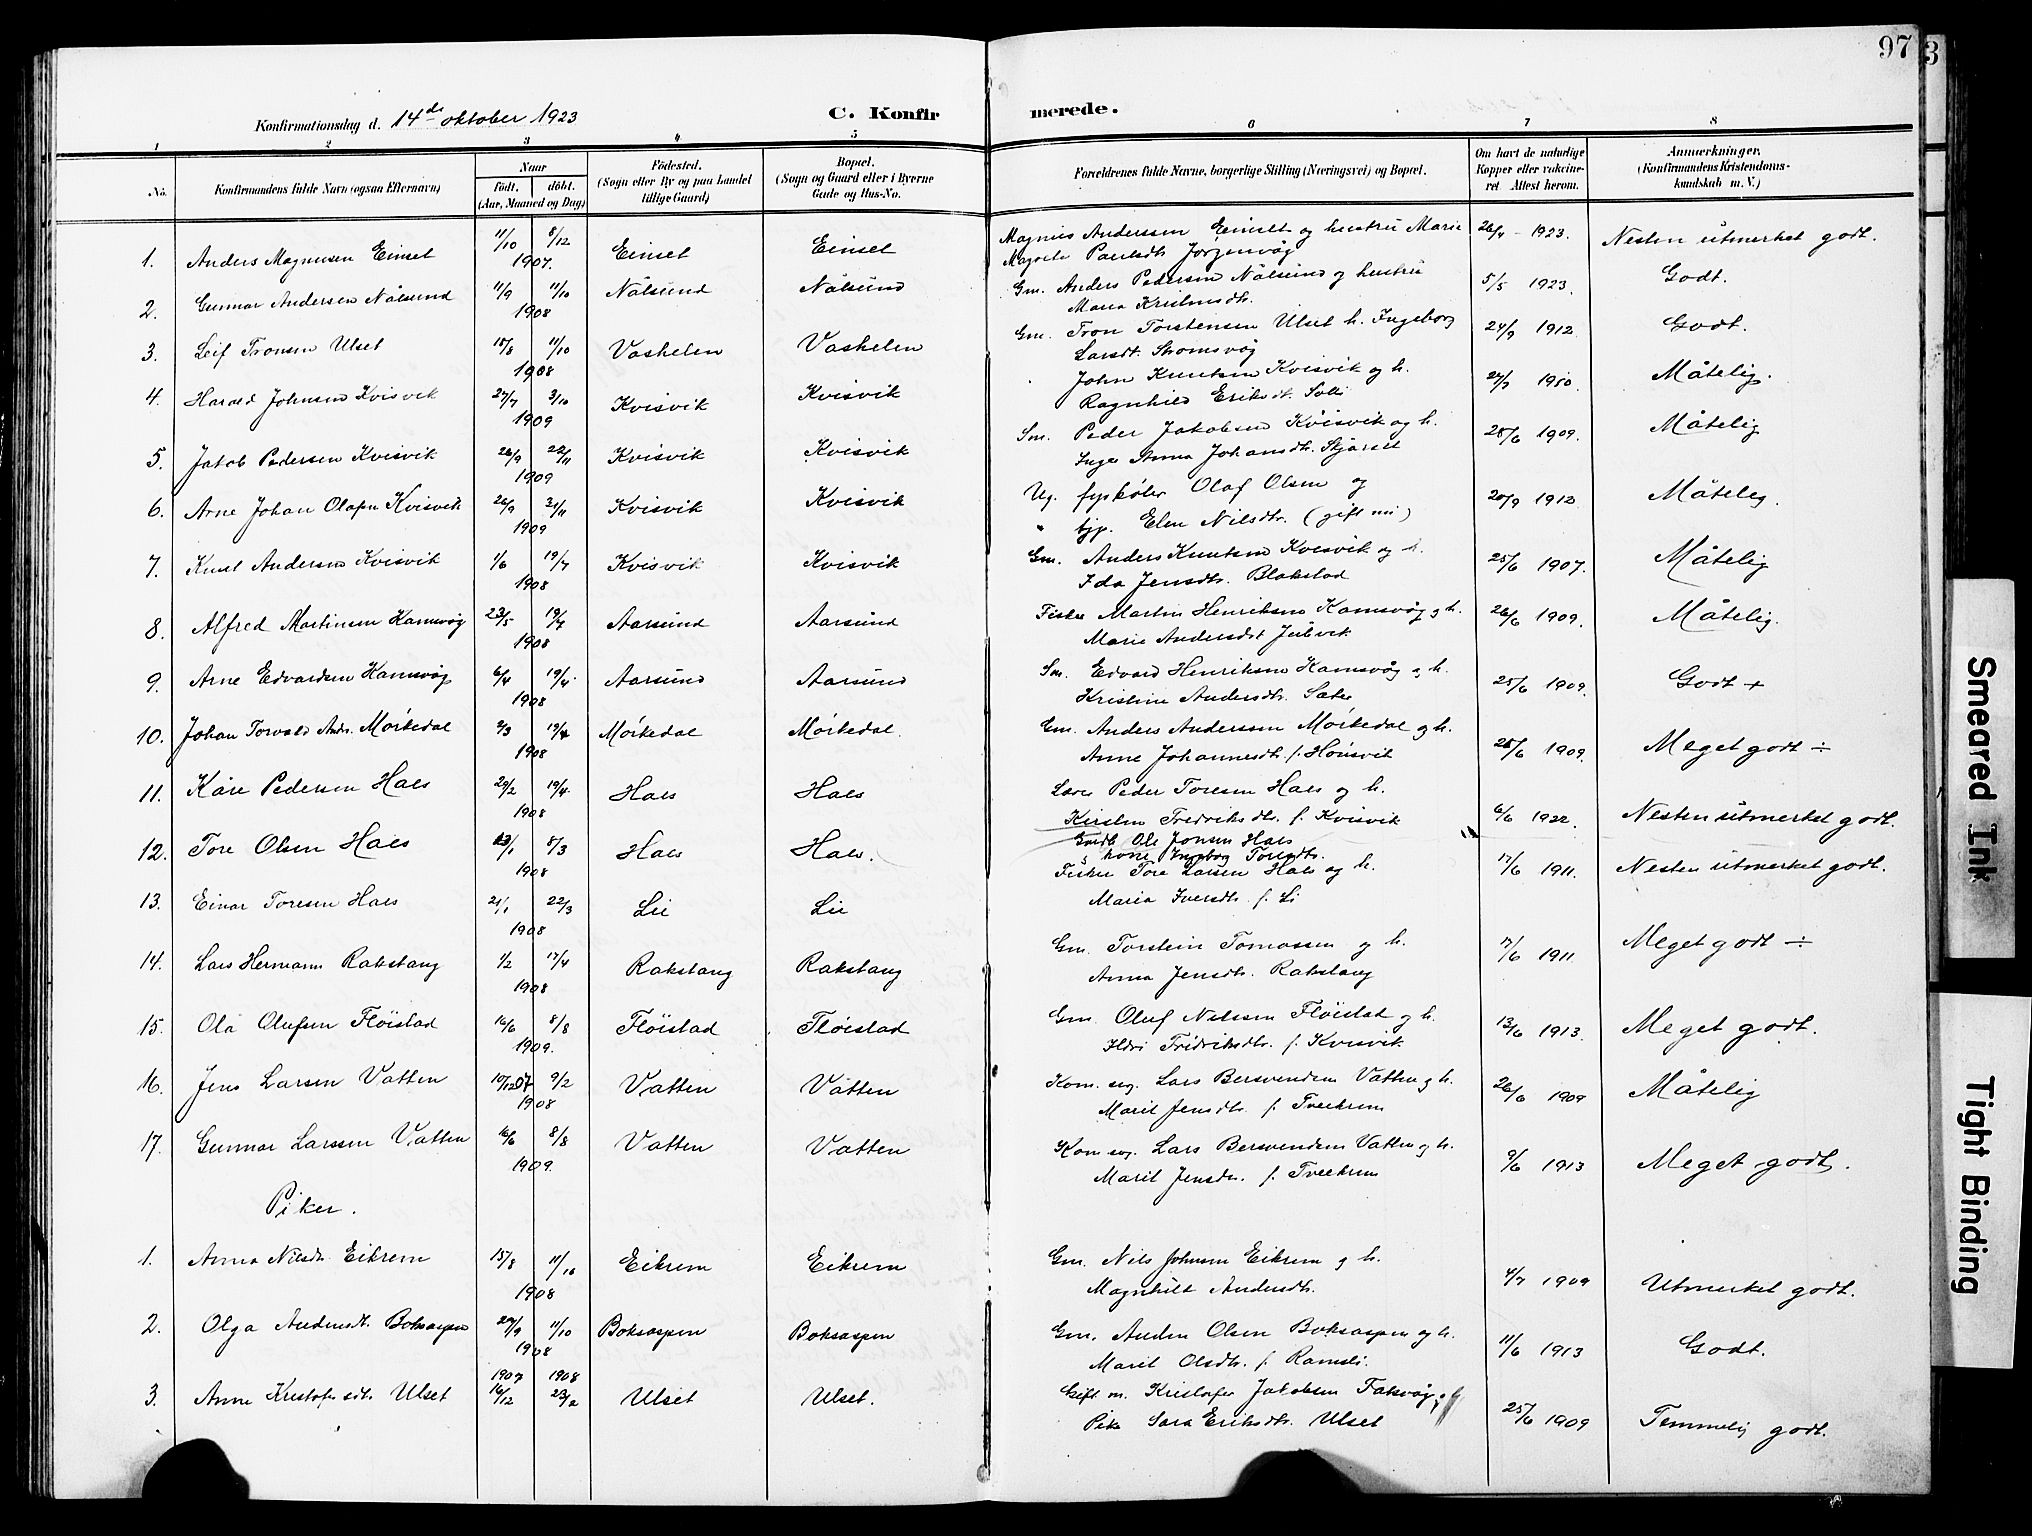 97
3
Konfirmationsdag d. 14de oktober 1923
C. Konfirmerede.
1 2 3 4 5 6 7 8
No. Konfirmandens fulde Navn (ogsaa Efternavn) Naar født, døbt. (Aar, Maaned og Dag) Fødested. (Sogn eller By og paa Landet tillige Gaard) Bopæl. (Sogn og Gaard eller i Byerne Gade og Hus-No. Forældrenes fulde Navne, borgerlige Stilling (Næringsvei) og Bopæl. Om havt de naturlige Kopper eller vakcineret Attest herom. Anmærkninger. (Konfirmandens Kristendomskundskab m. V.)
1. Anders Magnusen Einset 11/10 8/12 1907. Einset Einset Magnus Anderssen Einset og hustru Marie 26/4 - 1923. Nesten utmerket godt.
Magrete Paulsdtr Jørgenvåg
2. Gunnar Andersen Nålsund 11/9 11/10 1908 Nålsund Nålsund Gm. Anders Pedersen Nålsund og hustru 5/5 1923. Godt.
Maria Kristensdtr.
3. Leif Tronsen Ulset 15/8 11/10 1908 Vaskelen Vaskelen Gm. Tron Torstensen Ulset h. Ingeborg 24/9 1912. Godt.
Larsdt. Strømsvåg
4. Harald Johnsen Kvisvik 27/7 3/10 1909 Kvisvik Kvisvik John Knutsen Kvisvik og h. 27/7 1910. Måtelig.
Ragnhild Eriksdt. Solli
5. Jakob Pedersen Kvisvik 26/9 22/11 1909 Kvisvik Kvisvik Sm. Peder Jakobsen Kvisvik og h. 25/6 1909. Måtelig
Inger Anna Johansdtr. Stjørset
6. Arne Johan Olafsn Kvisvik 26/9 21/11 1909 Kvisvik Kvisvik Ug. fyrbøter Olaf Olsen og 20/9 1912 Måtelig.
" tjp. Elen Nilsdtr. (gift nu)
7. Knut Andersen Kvisvik 1/6 19/7 1908 Kvisvik Kvisvik Gm. Anders Knutsen Kvisvik og h. 25/6 1907. Måtelig
Ida Jensdtr. Blakstad
8. Alfred Martinsen Kamsvåg 23/5 19/7 1908 Aarsund Aarsund Fisker Martin Henriksen Kamsvåg og h. 26/6 1909. Måtelig.
Marie Andersdt Julvik
9. Arne Edvardsen Kamsvåg 6/4 19/4. 1908 Aarsund Aarsund Sm. Edvard Henriksen Kamsvåg og h. 25/6 1909. Godt +
Kristine Andersdtr. Sæter
10. Johan Torvald Andr. Mørkedal 2/3 19/4 1908 Mørkedal Mørkedal. Gm. Anders Anderssen Mørkedal og h. 25/6 1909. Meget godt ÷
Anne Johannesdtr. f. Honsvik
11. Kåre Pedersen Haes 29/2 19/4. 1908 Haes Haes Lærer Peder Toresen Haes og h. 6/6 1922. Nesten utmerket godt.
Kirsten Fredriksdtr. f. Kvisvik
12. Tore Olsen Haes 23/1 8/3 1908 Haes Haes. Gardb Ole Jonsen Haes 17/6 1911. Nesten utmerket godt.
kone Ingebog Toresdtr.
13. Einar Toresen Haes 21/1 22/3 1908 Lie Lie Fisker Tore Larsen Haes og h.
Maria Iversdtr. f. Li
14. Lars Hermann Rakstang 1/2 17/4 1908 Rakstang Rakstang Gm. Torstein Tomassen og h. 17/6 1911 Meget godt ÷
Anna Jensdtr. Rakstang
15. Ola Olufsen Fløistad 16/6 8/8 1909. Fløistad Fløistad Gm. Oluf Nilssen Fløistad og h. 13/6 1913. Meget godt.
Ildri Fridriksdtr. f. Kvisvik
16. Jens Larsen Vatten 10/12 07 9/2 1908 Vatten Vatten Kom. seg. Lars Bersvendsen Vatten og h. 26/6 1909 Måtelig
Marit Jensdtr. f. Tveekrem
17. Gunnar Larssen Vatten 16/6 8/8 1909. Vatten Vatten Kom seg. Lars Bersvendsen Vatten og h. 9/6 1913 Meget godt.
Marit Jensdtr. f. Tveekrem
Piker.
1. Anna Nilsdtr Eikrem 15/8 11/10 1908 Eikrem Eikrem Gm. Nils Johnsen Eikrem og h. 4/7 1909 Utmerket godt.
Magnhilt Andersdtr.
2. Olga Andersdt. Boksaspen 24/9 11/10 1908 Boksaspen Boksaspen Gm. Anders Olsen Boksaspen og h. 11/6 1913 Godt.
Marit Olsdtr. f. Ramsli.
3. Anne Kristofersdtr. Ulset 1907 16/12 1908 23/2 Ulset Ulset. Gift m. Kristofer Jakobsen Faksvåg og 25/6 1909 Temmelig godt.
Pike Sara Eriksdtr. Ulset
Smeared Ink
Tight Binding